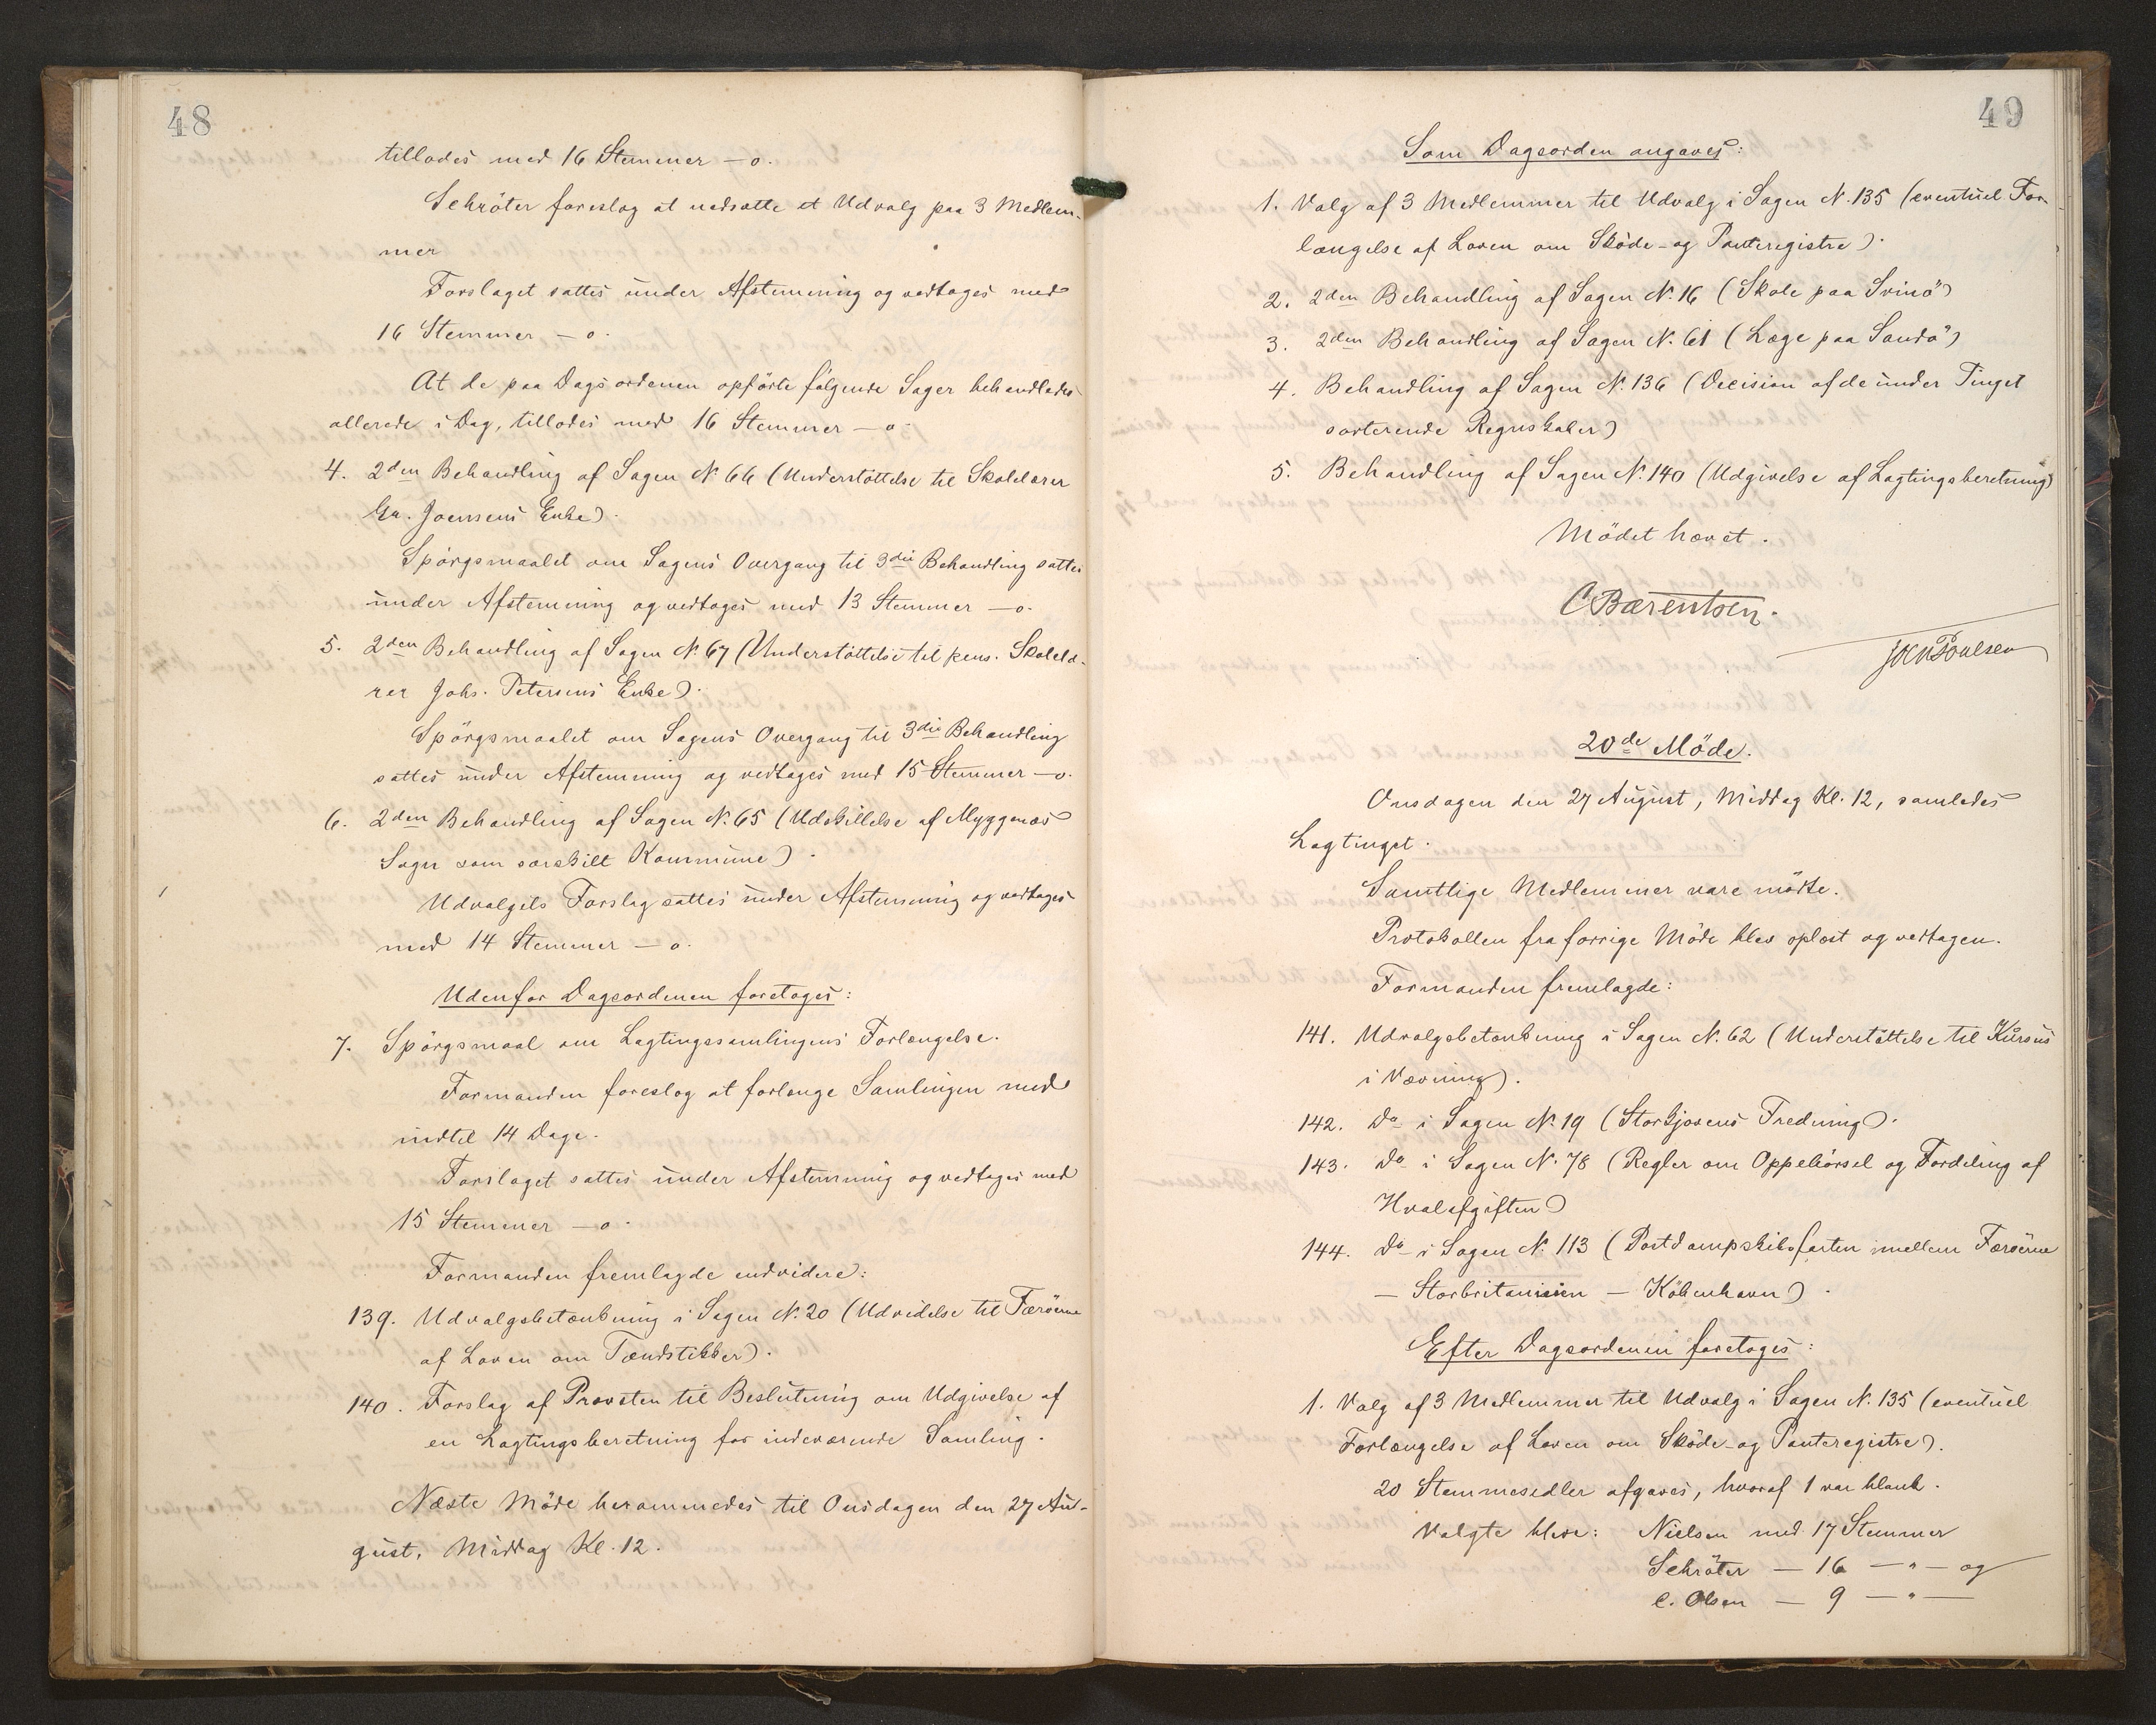 48
tillodes med 16 Stemmer – o.
Schröter foreslog at nedsætte et Udvalg paa 3 Medlem-
mer
Forslaget sattes under Afstemning og vedtoges med
16 Stemmer – o.
At de paa Dagsordenen opførte følgende Sager behandledes
allerede i Dag, tillodes med 16 Stemmer – o.
4. 2den Behandling af Sagen N. 66 (Understöttelse til Skolelærer
Joensens Enke).
Spörgsmaalet om Sagens Overgang til 3die Behandling sattes
under Afstemning og vedtoges med 13 Stemmer – o.
5. 2den Behandling af Sagen N. 67 (Understöttelse til pens. Skolelæ-
rer Johs. Petersens Enke).
Spörgsmaalet om Sagens Overgang til 3die Behandling
sattes under Afstemning og vedtoges med 15 Stemmer – o.
6. 2den Behandling af Sagen N. 65 (Udskillelse af Myggenæs
Sogn som særskilt Kommune).
Udvalgets Forslag sattes under Afstemning og vedtoges
med 14 Stemmer – o.
Udenfor Dagsordenen foretoges:
7. Spörgsmaal om Lagtingssamlingens Forlængelse.
Formanden foreslog at forlænge Samlingen med
indtil 14 Dage.
Forslaget sattes under Afstemning og vedtoges med
15 Stemmer – o.
Formanden fremlagde endvidere:
139. Udvalgsbetænkning i Sagen N. 20 (Udvidelse til Færöerne
af Loven om Tændstikker).
140. Forslag af Provsten til Beslutning om Udgivelse af
en Lagtingsberetning for indeværende Samling.
Næste Möde berammedes til Onsdagen den 27 Au-
gust, Middag Kl. 12.
49
Som Dagsorden angaves:
1. Valg af 3 Medlemmer til Udvalg i Sagen N. 135 (eventuel For-
længelse af Loven om Sköde- og Panteregistre).
2. 2den Behandling af Sagen N. 16 (Skole paa Svinö)
3. 2den Behandling af Sagen N. 61 (Læge paa Sandö)
4. Behandling af Sagen N. 136 (Decision af de under Tinget
sorterende Regnskaber)
5. Behandling af Sagen N. 140 (Udgivelse af Lagtingsberetning)
Mödet hævet.
C Bærentsen.
Poulsen
20de Möde.
Onsdagen den 27 August, Middag Kl. 12, samledes
Lagtinget.
Samtlige Medlemmer vare mödte.
Protokollen fra forrige Möde blev oplæst og vedtagen.
Formanden fremlagde:
141. Udvalgsbetænkning i Sagen N. 62 (Understöttelse til Kursus
i Vævning).
142. Do i Sagen N. 19 (Storkjovens Fredning).
143. Do i Sagen N. 78 (Regler om Oppebörsel og Fordeling af
Hvalafgiften)
144. Do i Sagen N. 113 (Postdampskibsfarten imellem Færöerne
– Storbritannien – Köbenhavn).
Efter Dagsordenen foretoges:
1. Valg af 3 Medlemmer til Udvalg i Sagen N. 135 (eventuel
Forlængelse af Loven om Sköde- og Panteregistre).
20 Stemmesedler afgaves, hvoraf 1 var blank.
Valgte bleve: Nielsen med 17 Stemmer
Schröter – 16 – " – og
C. Olsen – 9 – " –